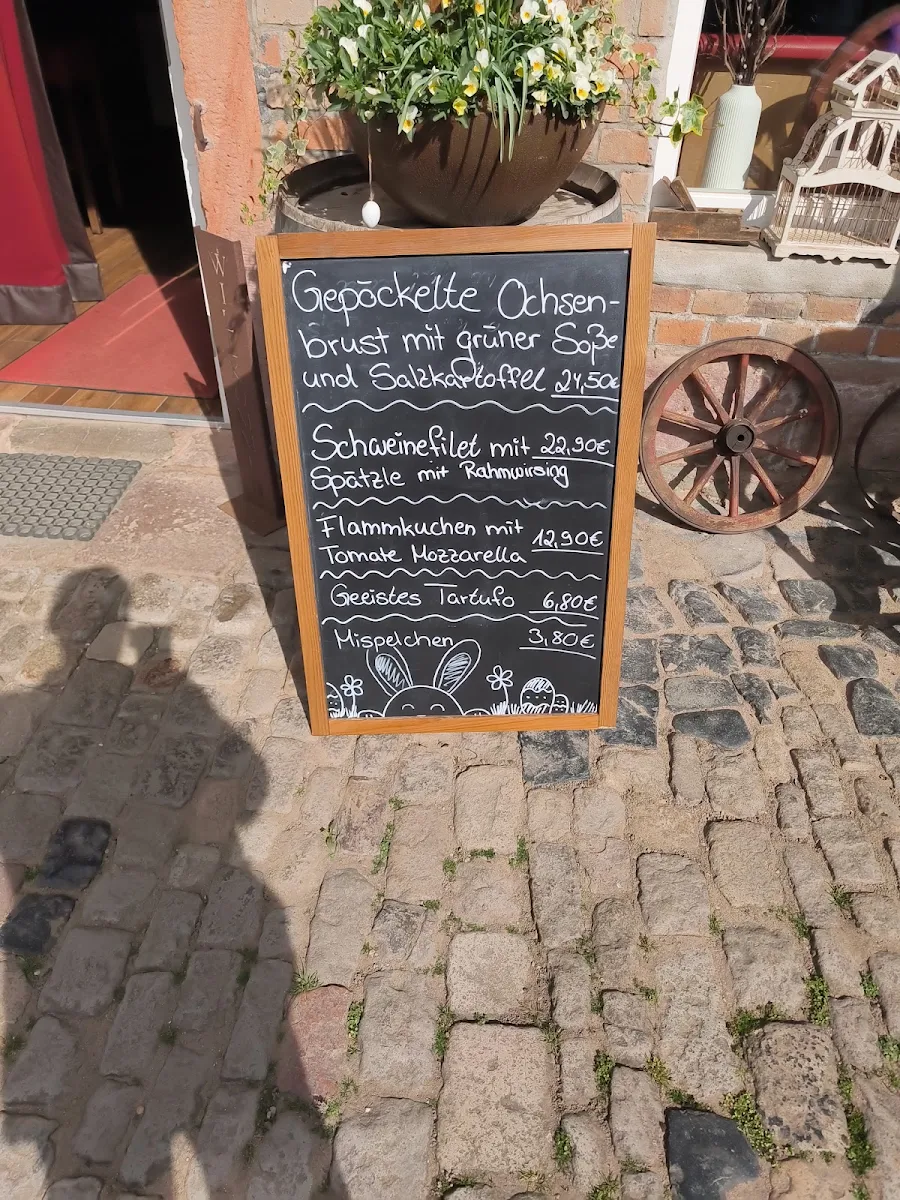 Gepöckelte Ochsen-
brust mit grüner Soße
und Salzkartoffel 24,50€
Schweinefilet mit 22,90€
Spätzle mit Rahmwirsing
Flammkuchen mit
Tomate Mozzarella 12,90€
Geeistes Tartufo 6,80€
Mispelchen 3,80€